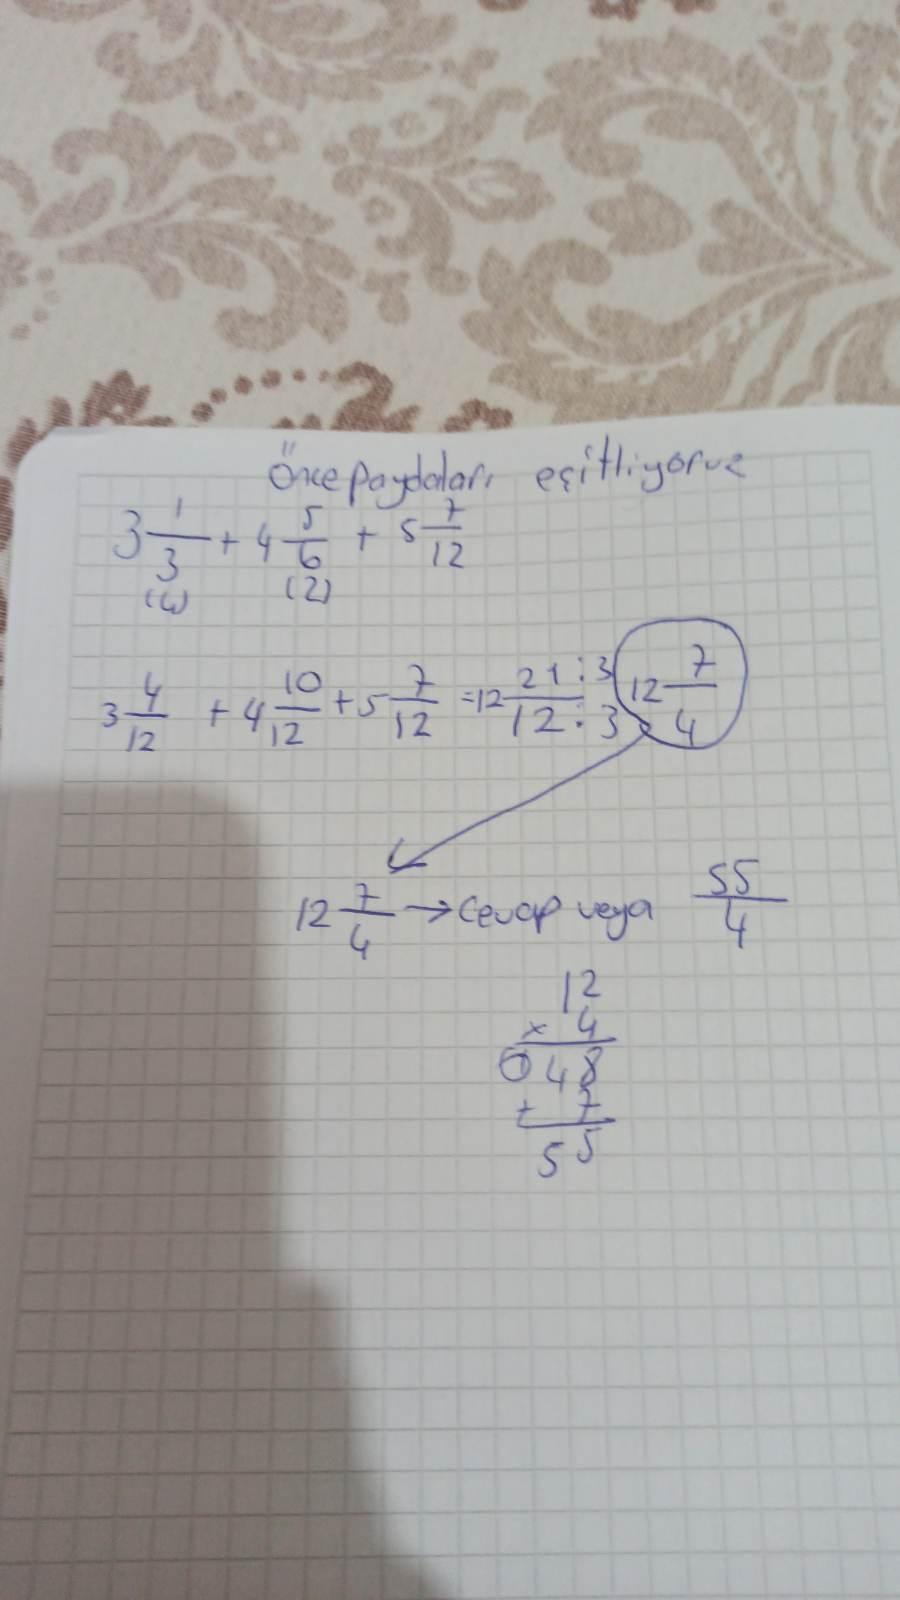 Önce paydaları eşitliyoruz
3 1/3 + 4 5/6 + 5 7/12
(4) (2)
3 4/12 + 4 10/12 + 5 7/12 = 12 21:3/12:3 12 7/4
12 7/4 → Cevap veya 55/4
12
x 4
048
+ 7
55